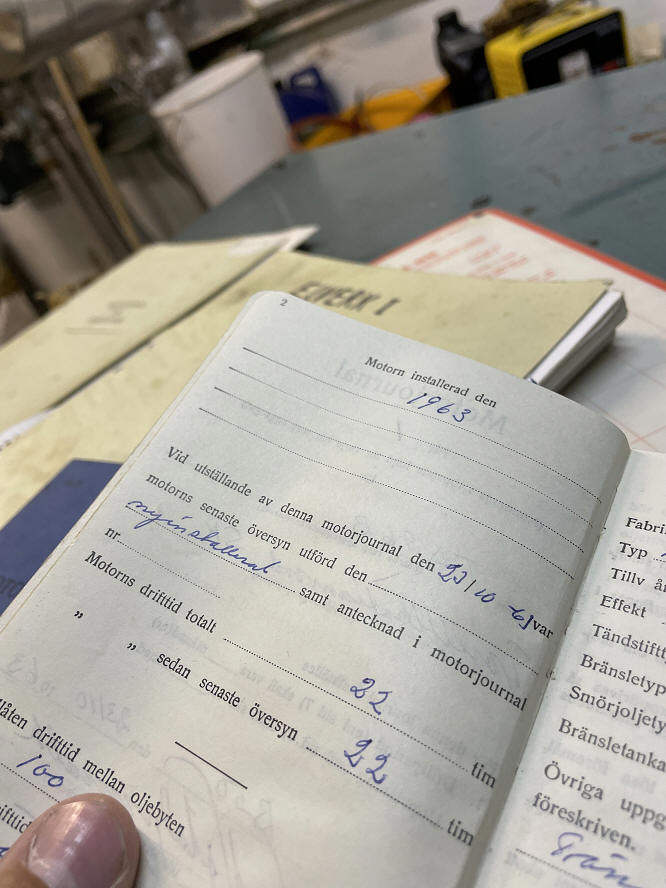 ELVERK I
2
Motorn installerad den
1963
Vid utställande av denna motorjournal den 23/10 -63 var
motorns senaste översyn utförd den
nyinstallerad samt antecknad i motorjournal
nr
Motorns drifttid totalt 22 tim
„ „ sedan senaste översyn 22 tim
drifttid mellan oljebyten
100
Typ
Tillv
Effekt
Bränsletyp
Övriga
föreskriven.